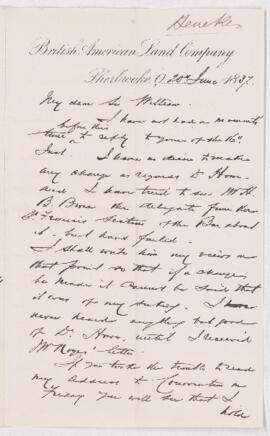 British American Land Company
Sherbrooke, Q. 20th June 1897.
My dear Sir William.
I have not had a moments
before this
time to reply to yours of the
Inst. I have no desire to make
any change as regards Dr Howe
and I have tried to see Mr H.
B. the delegate from the
St Francis Section of the Bar about
it - but have failed.
I shall write him my views on
that point so that if a change
be made it cannot be said that
it was of my seeking. I
never heard anything but good
of Dr. Howe. until I received
letter.
If you took the trouble to read
my address to Convocation on
Friday you will see that I
hold